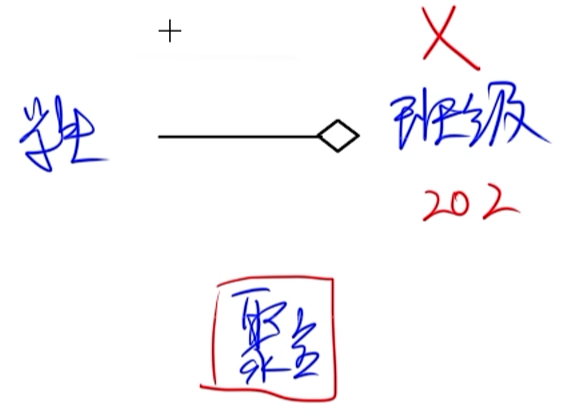 学生 班级
202
聚合